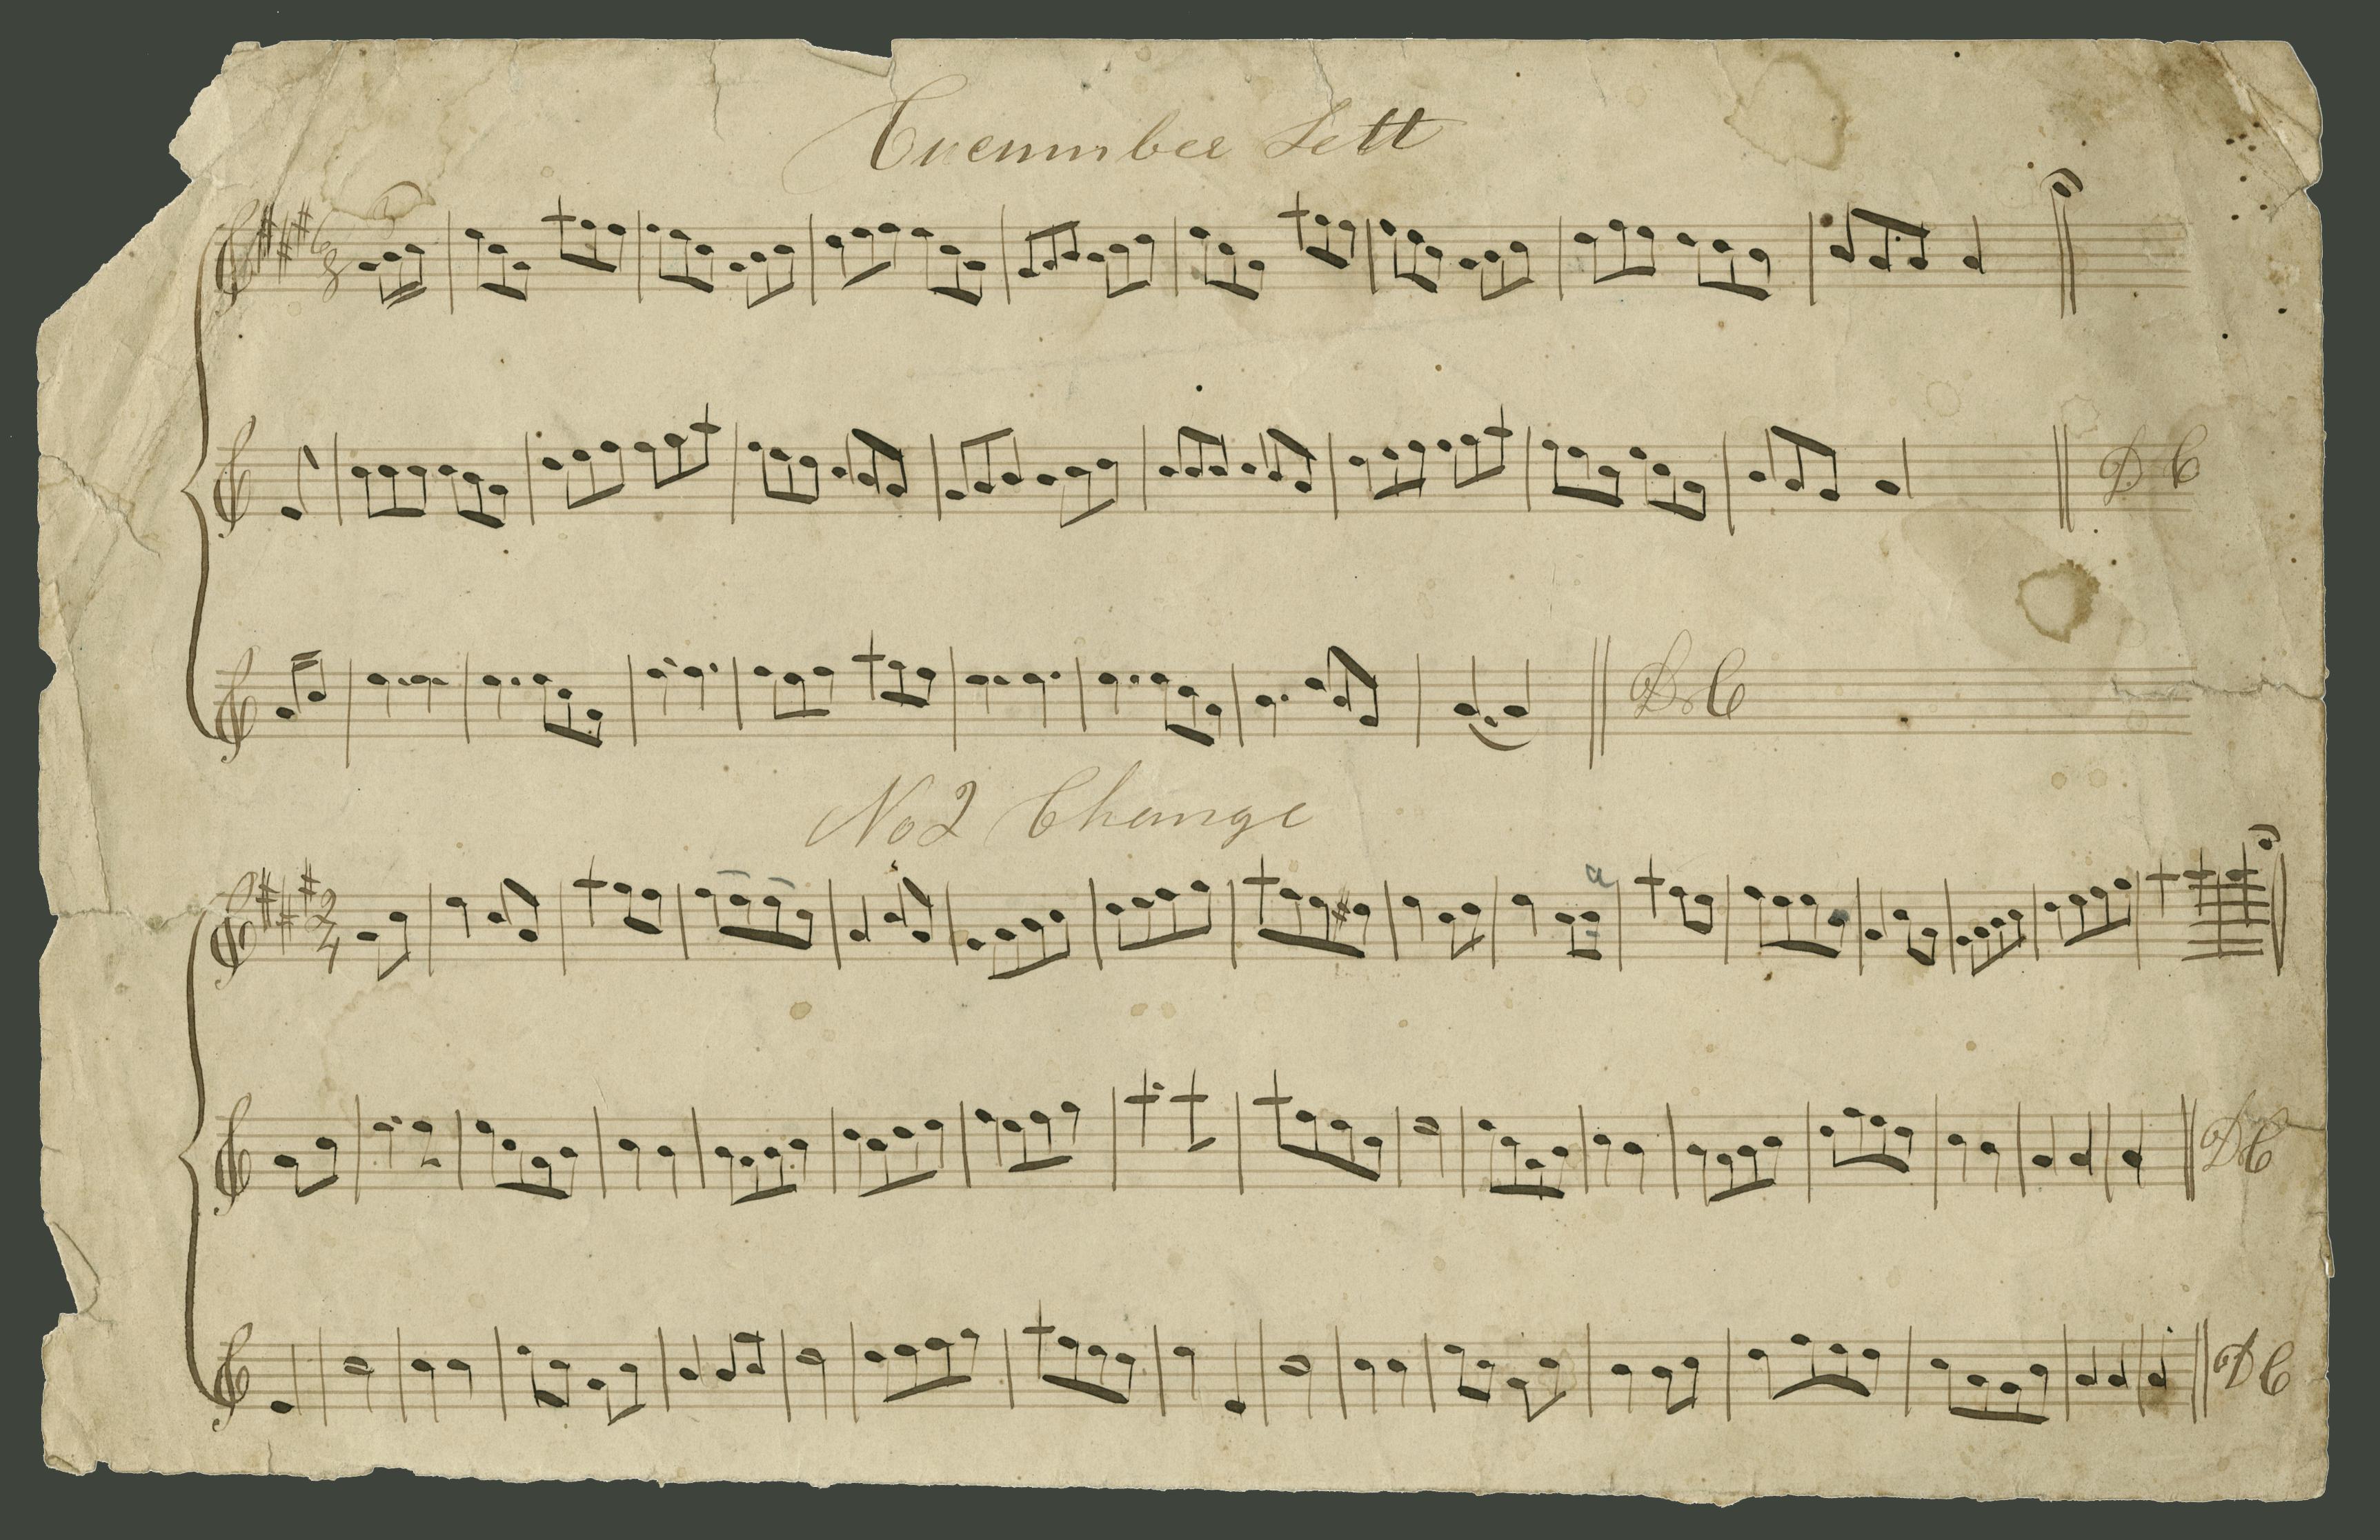 Cucumber Sett
6
8
3
D C
D.C
No 2 Change
2
4
a
D.C
D C